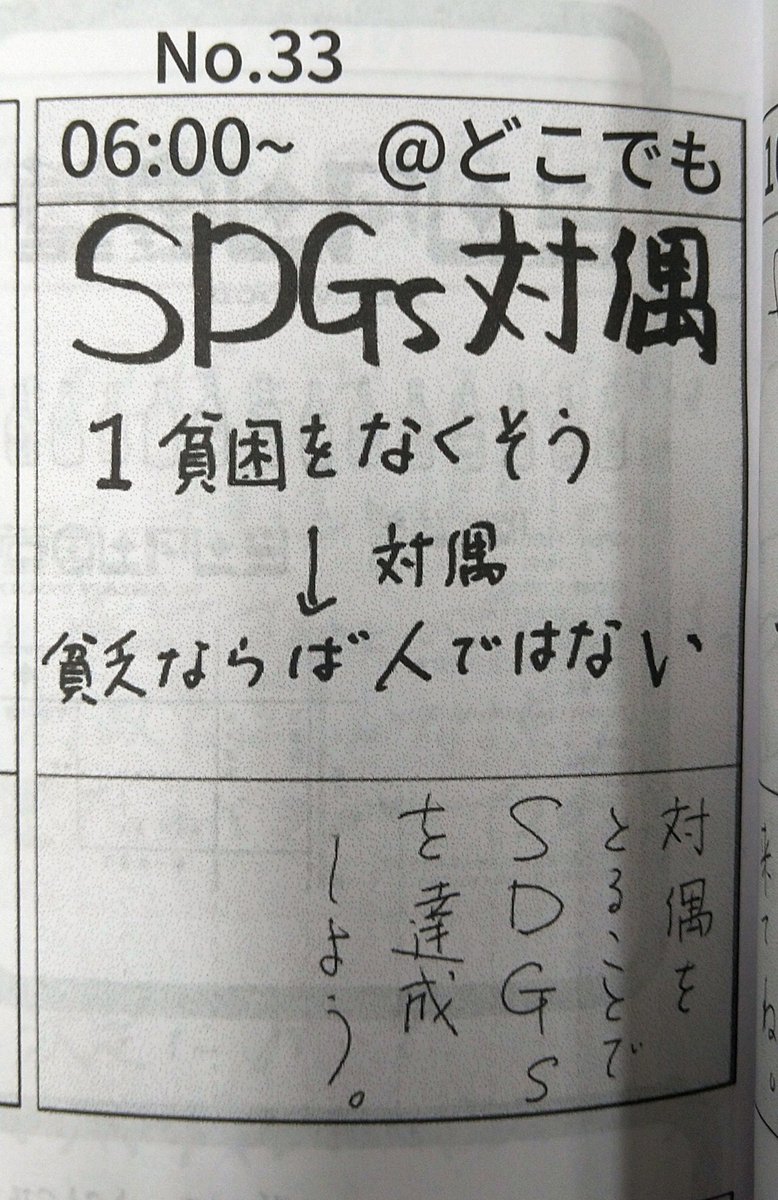 No.33
06:00~ @どこでも
SDGs対偶
1 貧困をなくそう
↓ 対偶
貧乏ならば人ではない
対偶を
とることで
SDGs
を達成
しよう。